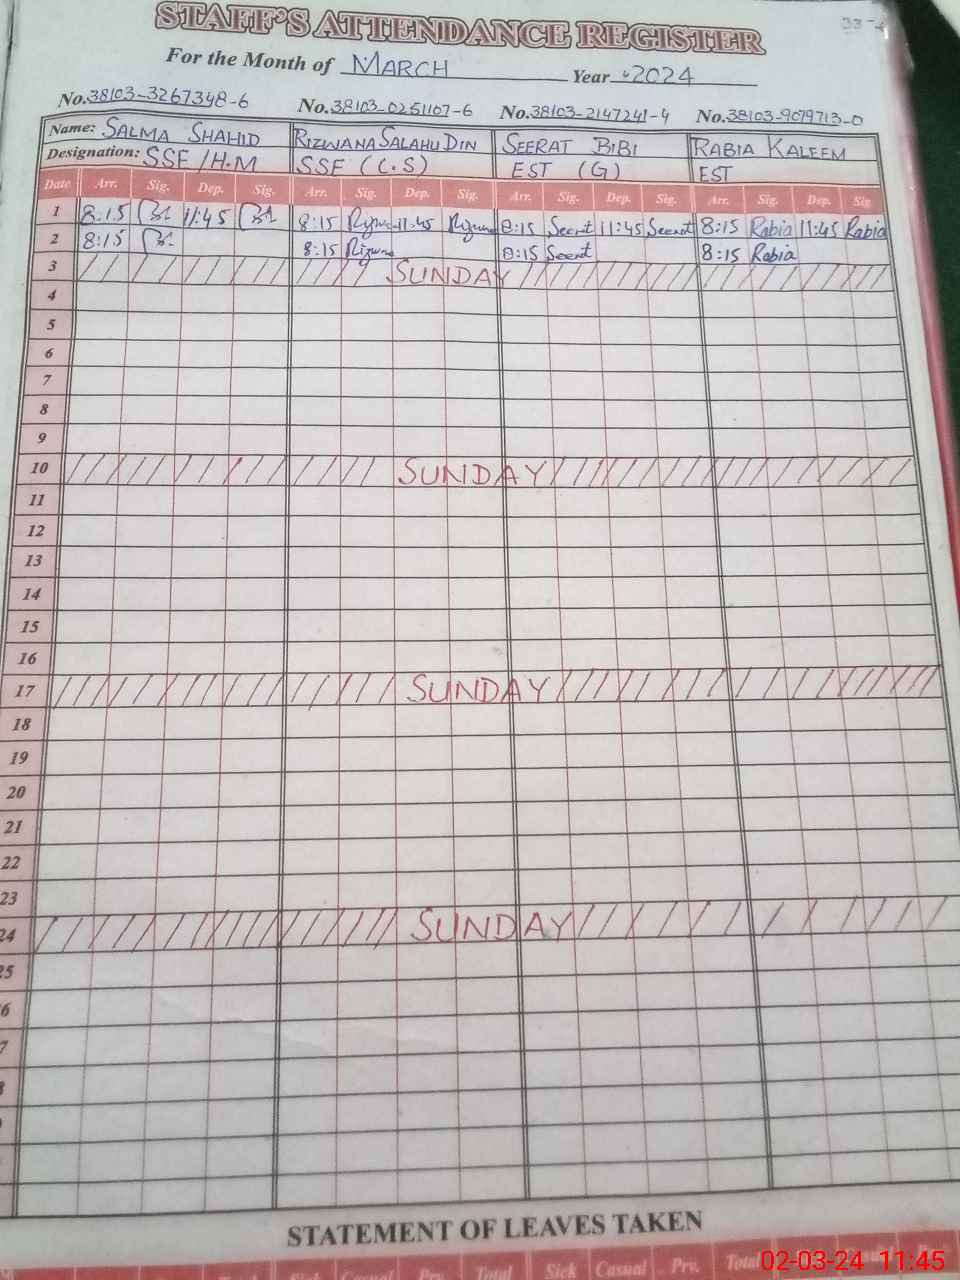 STAFF'S ATTENDANCE REGISTER
For the Month of MARCH Year 2024
No. 38103-3267348-6 No. 38103-0251107-6 No. 38103-2147241-4 No. 38103-9079713-0
Name: SALMA SHAHID RIZWANA SALAHU DIN SEERAT BIBI RABIA KALEEM
Designation: SSE/H.M SSE (C.S) EST (G) EST
Date Arr. Sig. Dep. Sig. Arr. Sig. Dep. Sig. Arr. Sig. Dep. Sig. Arr. Sig. Dep. Sig
1 8:15 11:45 8:15 11:45 8:15 Seerat 11:45 Seerat 8:15 Rabia 11:45 Rabia
2 8:15 8:15 8:15 Seerat 8:15 Rabia
3 SUNDAY
4
5
6
7
8
9
10 SUNDAY
11
12
13
14
15
16
17 SUNDAY
18
19
20
21
22
23
24 SUNDAY
25
STATEMENT OF LEAVES TAKEN
Sick Casual Prv. Total Sick Casual Prv. Total
02-03-24 11:45